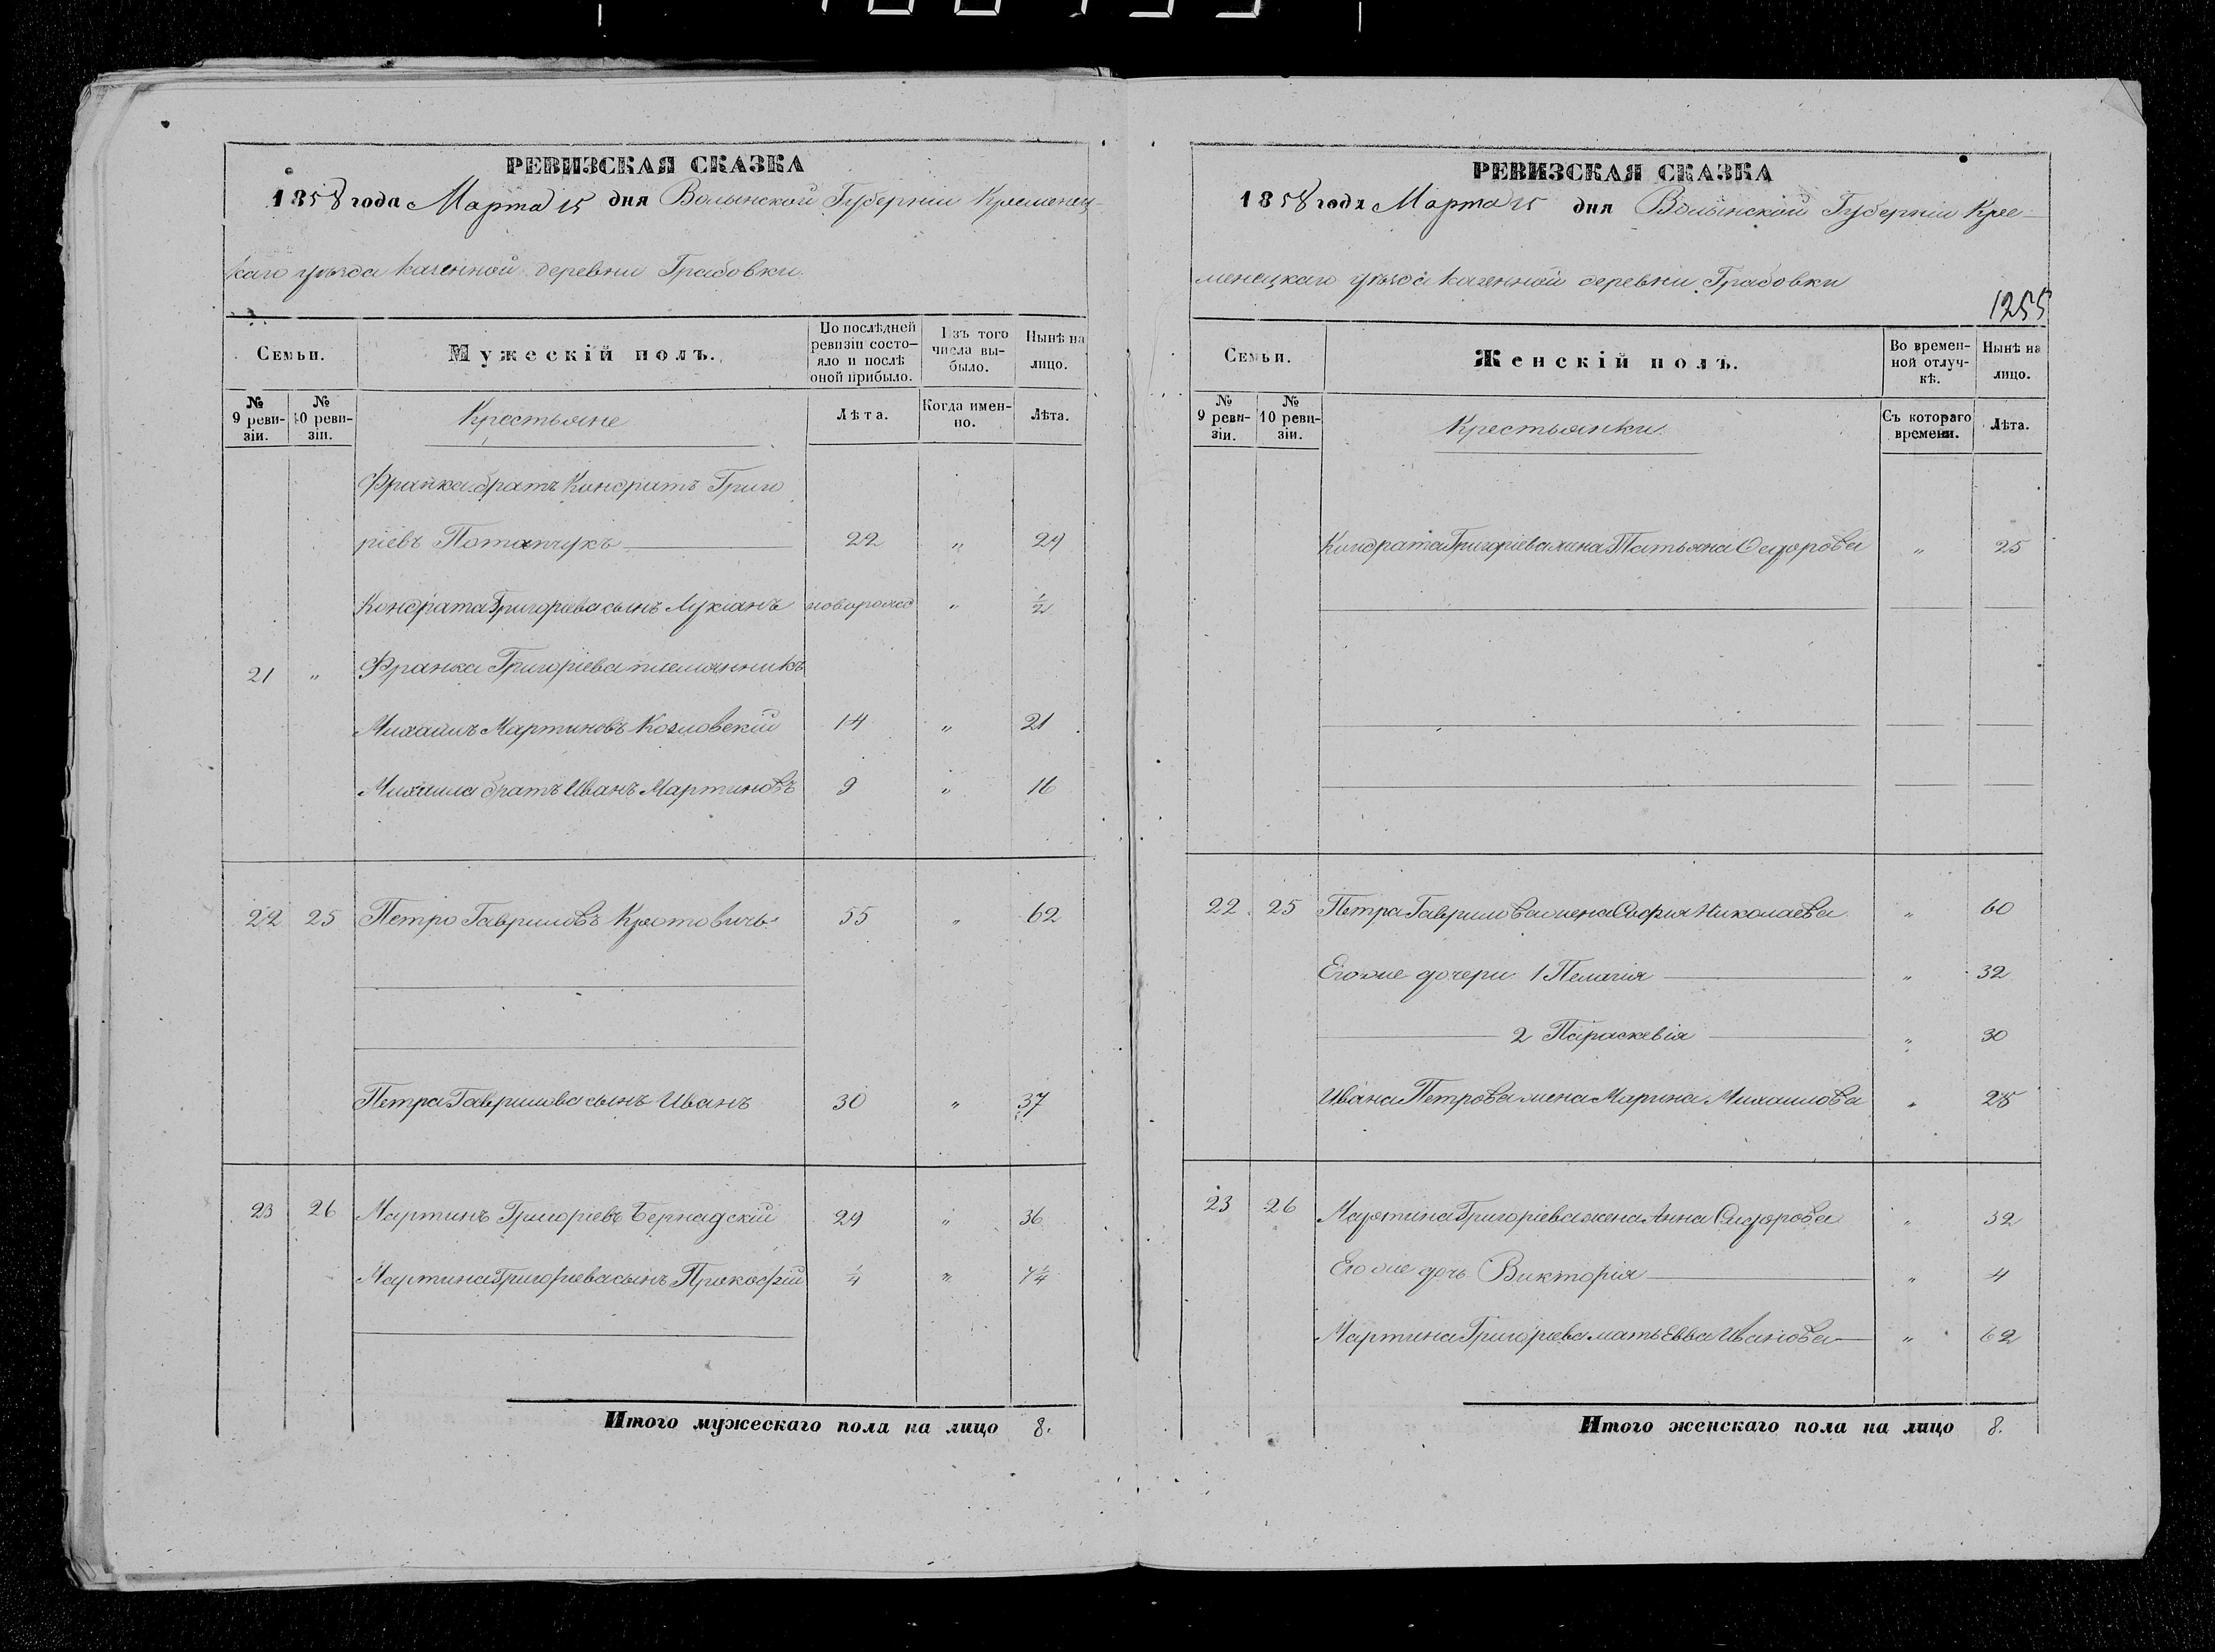 РЕВИЗСКАЯ СКАЗКА
1858 года Марта 15 дня Волынской Губернии Кременец-
каго уѣзда казенной деревни Грабовки
Семьи.
Мужескій полъ.
По послѣдней ревизіи состо-яло и послѣ оной прибыло.
Изъ того числа вы-было.
Нынѣ на лицо.
№ 9 реви-зіи.
№ 10 реви-зіи.
Крестьяне
Лѣта.
Когда имен-но.
Лѣта.
Франка братъ Кондратъ Григо
ріевъ Потапчукъ 22 " 29
Кондрата Григоріева сынъ Лукіанъ новорожд " ½
21 " Франка Григоріева племянникъ
Михаилъ Мартиновъ Козловскій 14 " 21
Михаила братъ Иванъ Мартиновъ 9 " 16
22 25 Петро Гавриловъ Кротовичъ 55 " 62
Петра Гаврилова сынъ Иванъ 30 " 37
23 26 Мартинъ Григоріевъ Бернадскій 29 " 36
Мартина Григоріева сынъ Прокофій ¼ " 7¼
Итого мужескаго пола на лицо 8.
РЕВИЗСКАЯ СКАЗКА
1858 года Марта 15 дня Волынской Губерніи Кре-
менецкаго уѣзда казенной деревни Грабовки
1255
Семьи.
Женскій полъ.
Во времен-ной отлуч-кѣ.
Нынѣ на лицо.
№ 9 реви-зіи.
№ 10 реви-зіи.
Крестьянки
Съ котораго времени.
Лѣта.
Кондрата Григоріева жена Татьяна Сидорова " 25
22 25 Петра Гаврилова жена Софія Николаева " 60
Его же дочери 1 Пелагія " 32
2 Параскевія " 30
Ивана Петрова жена Марина Михаилова "
23 26 Мартина Григоріева жена Анна Сидорова " 32
Его же дочь Викторія " 4
Мартина Григоріева мать Евва Иванова " 62
Итого женскаго пола на лицо 8.